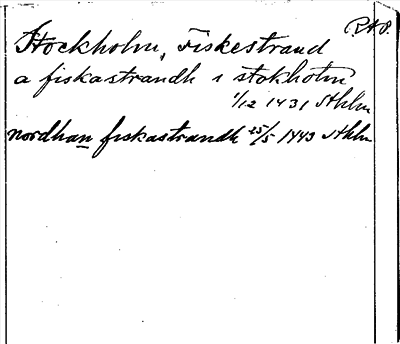 R.A.P.
Stockholm, Fiskestrand
a fiskastrandh i stokholm
1/12 1431 Sthlm
nordhan fiskastrandh 25/5 1443 Sthlm